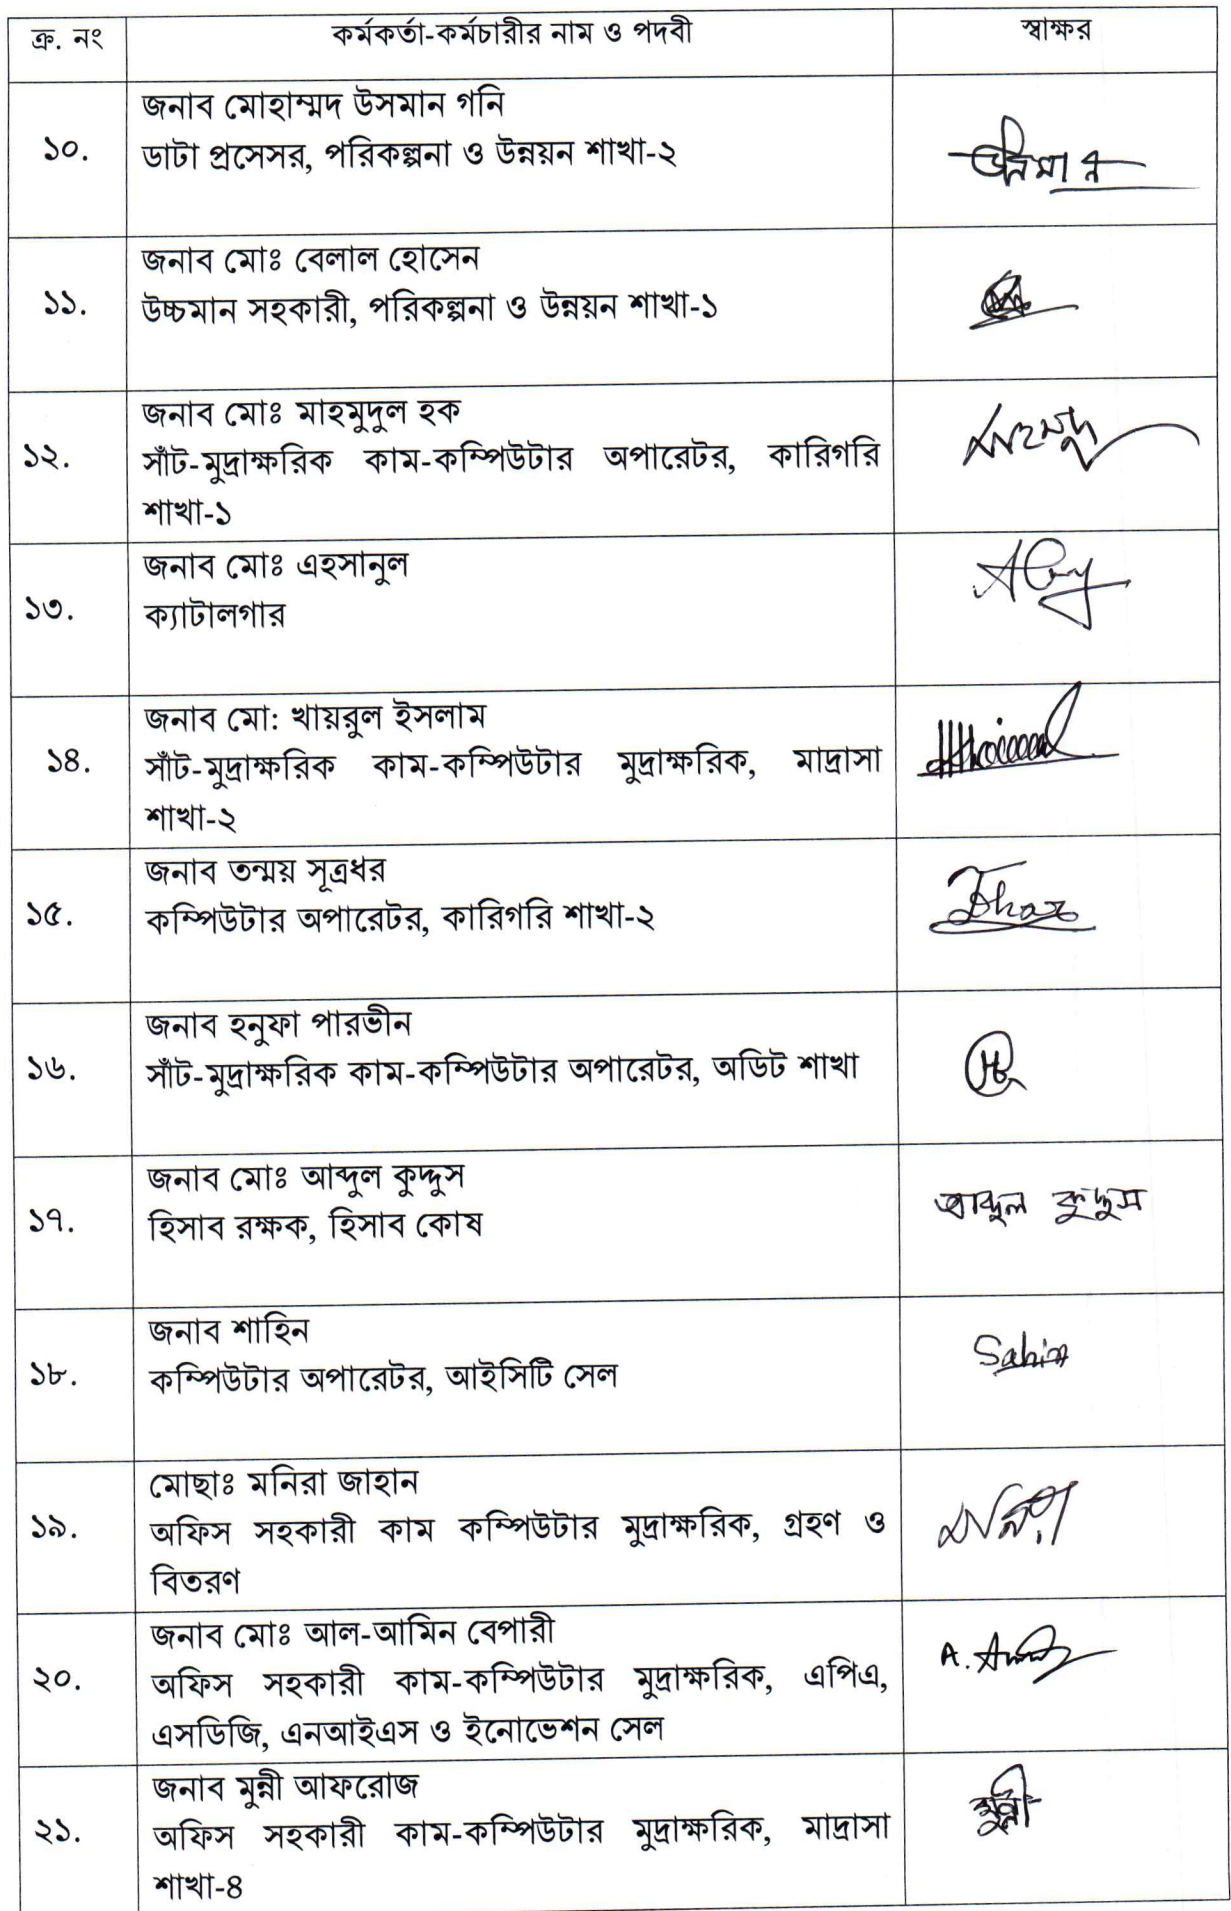 ক্র. নং কর্মকর্তা-কর্মচারীর নাম ও পদবী স্বাক্ষর
জনাব মোহাম্মদ উসমান গনি
১০. ডাটা প্রসেসর, পরিকল্পনা ও উন্নয়ন শাখা-২
জনাব মোঃ বেলাল হোসেন
১১. উচ্চমান সহকারী, পরিকল্পনা ও উন্নয়ন শাখা-১
জনাব মোঃ মাহমুদুল হক
১২. সাঁট-মুদ্রাক্ষরিক কাম-কম্পিউটার অপারেটর, কারিগরি
শাখা-১
জনাব মোঃ এহসানুল
১৩. ক্যাটালগার
জনাব মো: খায়রুল ইসলাম
১৪. সাঁট-মুদ্রাক্ষরিক কাম-কম্পিউটার মুদ্রাক্ষরিক, মাদ্রাসা
শাখা-২
জনাব তন্ময় সূত্রধর
১৫. কম্পিউটার অপারেটর, কারিগরি শাখা-২
জনাব হনুফা পারভীন
১৬. সাঁট-মুদ্রাক্ষরিক কাম-কম্পিউটার অপারেটর, অডিট শাখা
জনাব মোঃ আব্দুল কুদ্দুস
১৭. হিসাব রক্ষক, হিসাব কোষ আব্দুল কুদ্দুস
জনাব শাহিন
১৮. কম্পিউটার অপারেটর, আইসিটি সেল Sahin
মোছাঃ মনিরা জাহান
১৯. অফিস সহকারী কাম কম্পিউটার মুদ্রাক্ষরিক, গ্রহণ ও
বিতরণ
জনাব মোঃ আল-আমিন বেপারী
২০. অফিস সহকারী কাম-কম্পিউটার মুদ্রাক্ষরিক, এপিএ,
এসডিজি, এনআইএস ও ইনোভেশন সেল
জনাব মুন্নী আফরোজ মুন্নী
২১. অফিস সহকারী কাম-কম্পিউটার মুদ্রাক্ষরিক, মাদ্রাসা
শাখা-৪